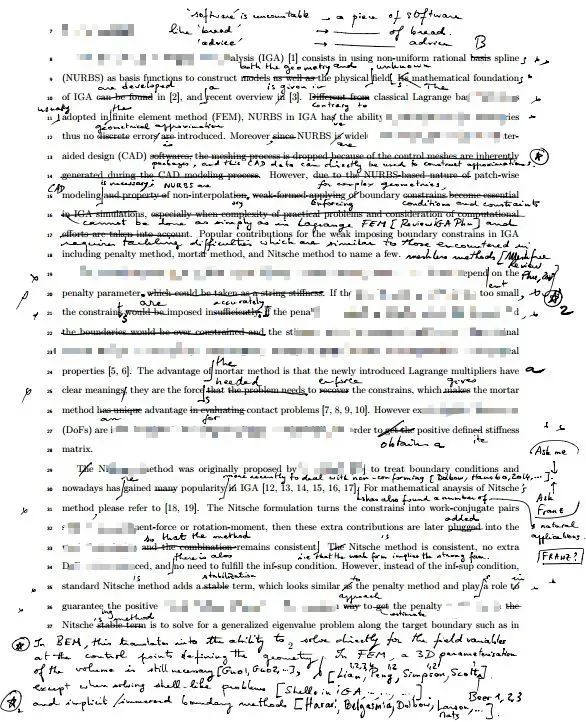 "software" is uncountable → a piece of software
7 like 'bread' → of bread.
'advice' → advice B
8 alysis (IGA) [1] consists in using non-uniform rational basis spline
both the geometry and unknown
9 (NURBS) as basis functions to construct models as well as the physical field. Its mathematical foundations
are developed a is given in The
10 of IGA can be found in [2], and recent overview in [3]. Different from classical Lagrange ba
usually the contrary to
11 adopted in finite element method (FEM), NURBS in IGA has the ability ries
geometrical approximation
12 thus no discrete errors are introduced. Moreover since NURBS is widel ter-
are
13 aided design (CAD) softwares, the meshing process is dropped because of the control meshes are inherently
package, and this CAD data can directly be used to construct approximations.
14 generated during the CAD modeling process. However, due to the NURBS-based nature of patch-wise
CAD NURBS are for complex geometries.
15 modeling and property of non-interpolation, weak-formed applying of boundary constrains become essential
enforcing conditions and constraints
16 in IGA simulations, especially when complexity of practical problems and consideration of computational
cannot be done as simply as in Lagrange FEM [Review IGA Phu] and
17 efforts are taken into account. Popular contributions for the weak imposing boundary constrains in IGA
requires tackling difficulties which are similar to those encountered in
18 including penalty method, mortar method, and Nitsche method to name a few. meshless methods [Meshfree Review
19 epend on the Phu,
20 penalty parameter, which could be taken as a string stiffness. If the too small,
are accurately
21 the constraints would be imposed insufficiently. If the penal d,
22 the boundaries would be over constrained and the sti nal
23 al
the
24 properties [5, 6]. The advantage of mortar method is that the newly introduced Lagrange multipliers have a
needed enforce gives
25 clear meaning, they are the force that the problem needs to recover the constrains, which makes the mortar
an for
26 method has unique advantage in evaluating contact problems [7, 8, 9, 10]. However ex
27 (DoFs) are i rder to get the positive defined stiffness
obtain a ite
28 matrix.
Ask me
29 The Ni ethod was originally proposed by ] to treat boundary conditions and
more recently to deal with non-conforming [Dolbow, Hansbo, 2014, ...].
30 nowadays has gained many popularity in IGA [12, 13, 14, 15, 16, 17]. For mathematical anaysis of Nitsche's
has also found a number of
Ask Franz
31 method please refer to [18, 19]. The Nitsche formulation turns the constrains into work-conjugate pairs
added
natural applications.
32 ent-force or rotation-moment, then these extra contributions are later plugged into the
so that the method is
33 and the combination remains consistent. The Nitsche method is consistent, no extra
there is also i.e. that the weak form implies the strong form.
FRANZ?
34 D ced, and no need to fulfill the inf-sup condition. However, instead of the inf-sup condition,
is stabilization
35 standard Nitsche method adds a stable term, which looks similar as the penalty method and play a role to
to in
approach
36 guarantee the positive way to get the penalty the
estimate
ing method
37 Nitsche stable term is to solve for a generalized eigenvalue problem along the target boundary such as in
In BEM, this translates into the ability to solve directly for the field variables
2
at the control points defining the geometry. In FEM, a 3D parameterisation
of the volume is still necessary [Guo1, Guo2, ...], [Lian, Peng, Simpson, Scott].
except when solving shell-like problems [Shells in IGA ..., ...]
Beer 1,2,3
and implicit/immersed boundary methods [Harari, Belgasmia, Dolbow, Larson, ...